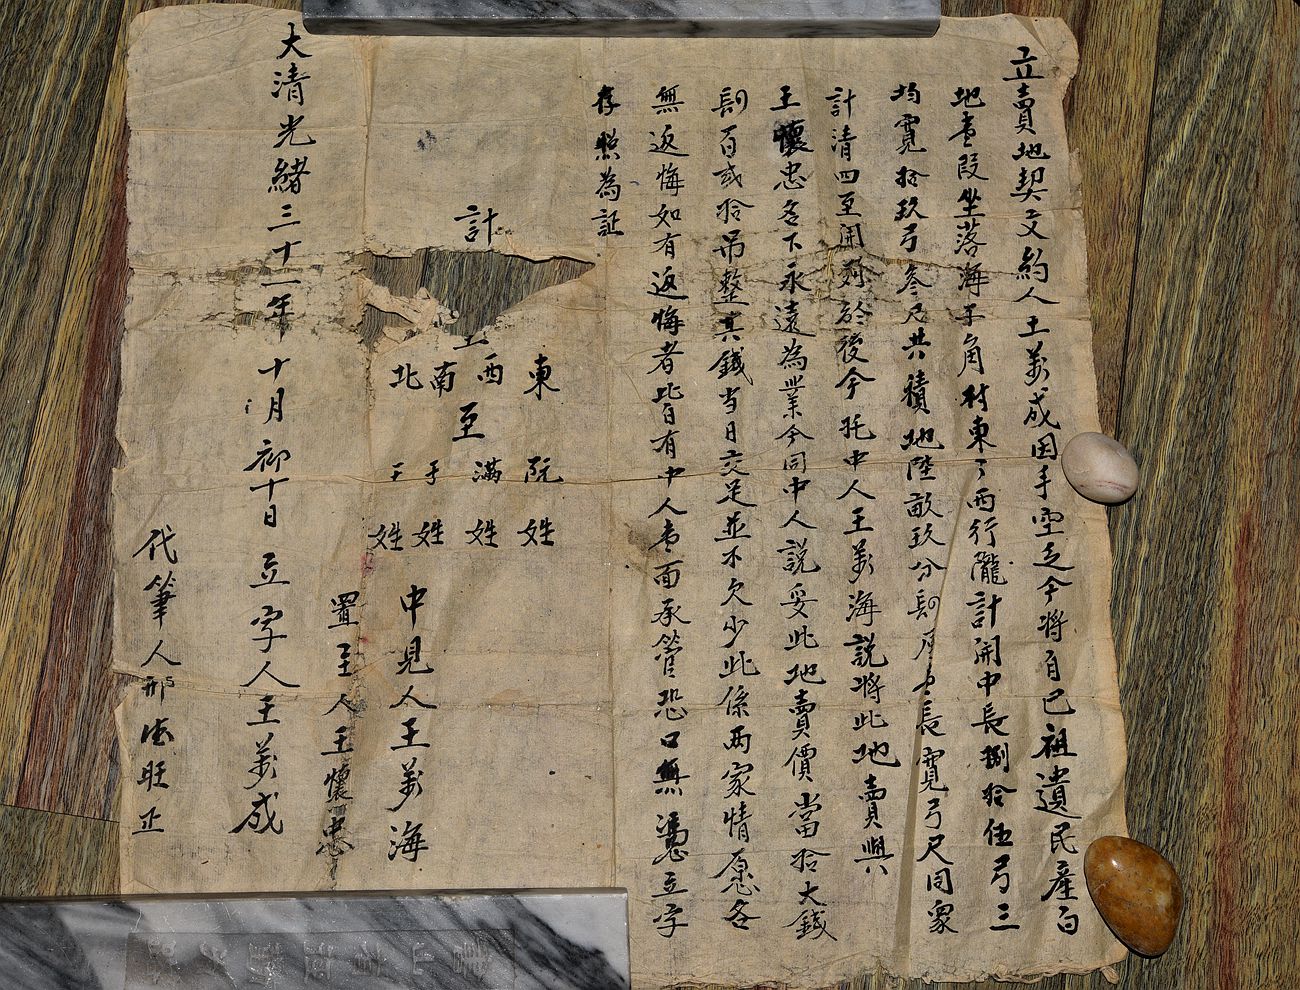 立賣地契文約人王萬成因手空乏今將自己祖遺民産白
地壹段坐落海子角村東了西行隴計開中長捌拾伍弓三
均寛拾玖弓叁尺共積地陸畝玖分 長寛弓尺同衆
計清四至開列於後今托中人王萬海説將此地賣與
王懷忠名下永遠為業今同中人説妥此地賣價當拾大錢
百弍拾吊整其錢当日交足並不欠少此係兩家情愿各
無返悔如有返悔者皆有中人壹面承管恐口無憑立字
存照為証
計
東至阮姓
西至滿姓
南至于姓
北至王姓
中見人王萬海
置主人王懷忠
大清光緒三十一年十月初十日立字人王萬成
代筆人邢 旺正